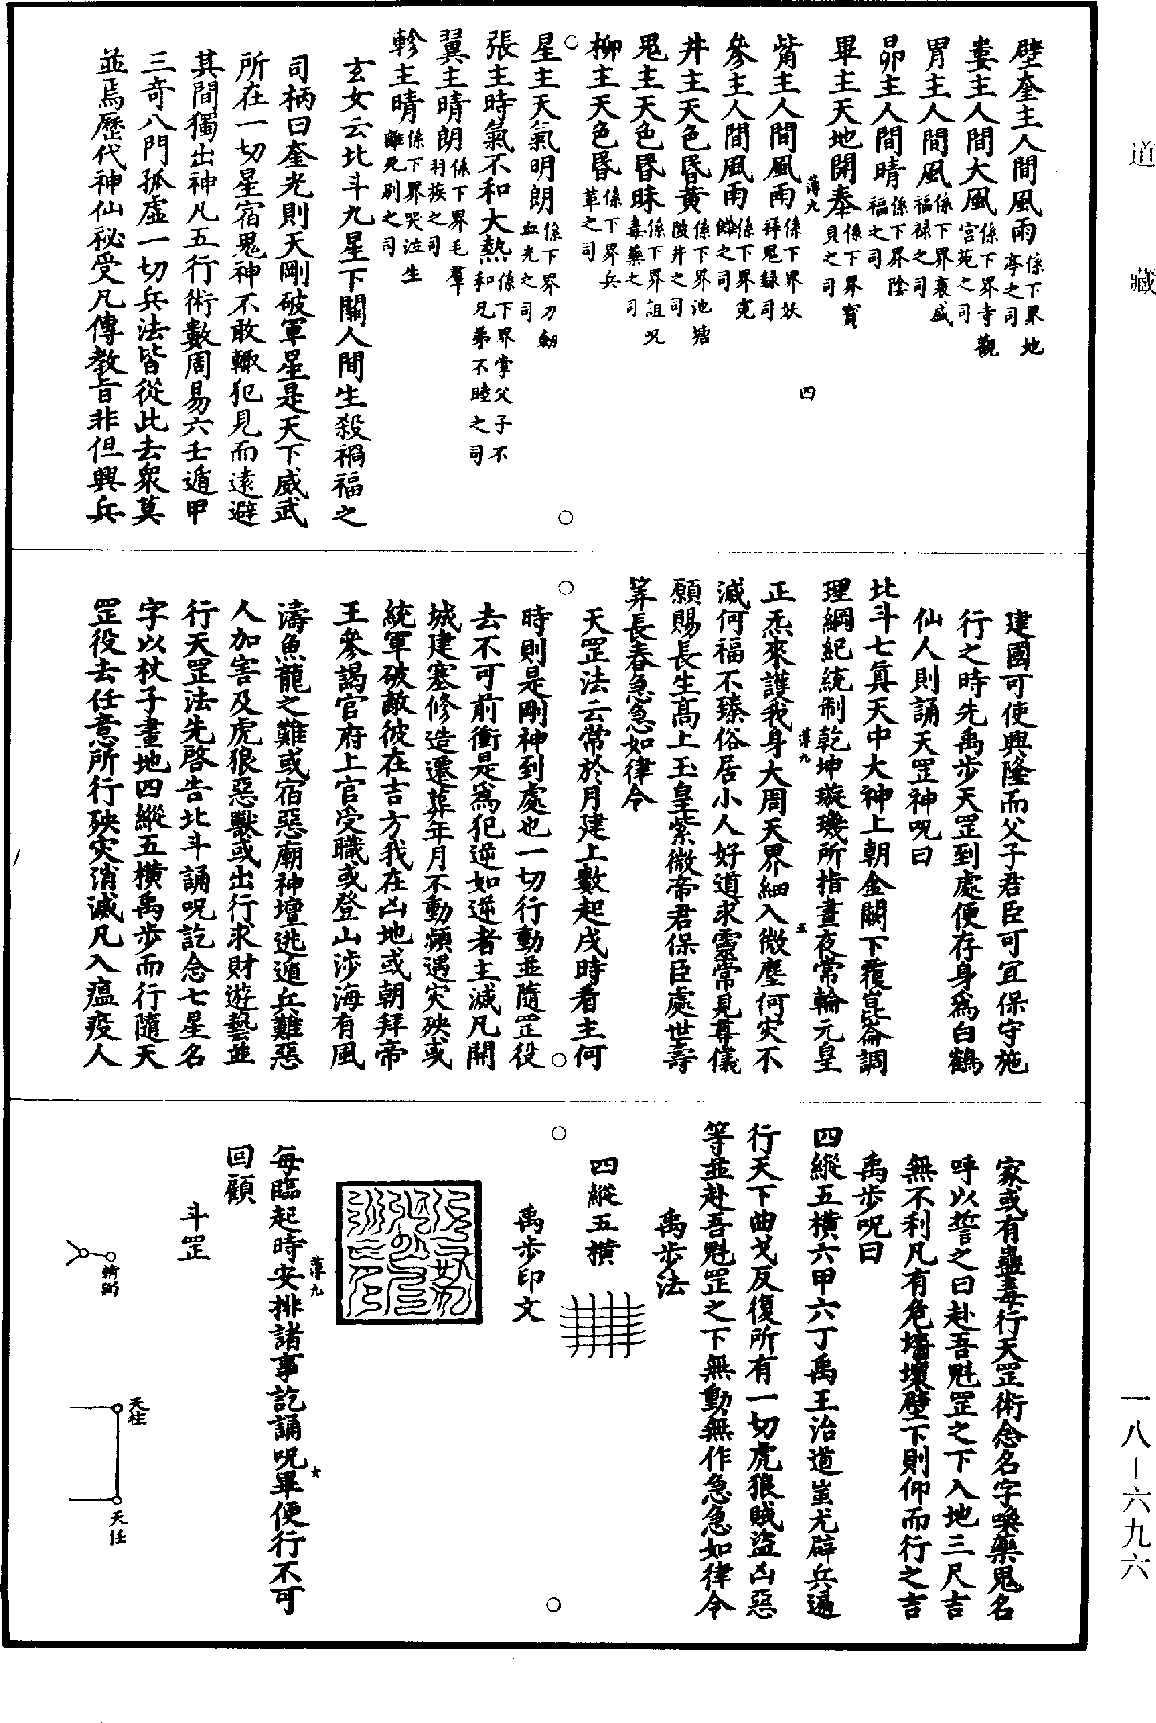 道藏
壁奎主人間風雨係下界地亭之司
婁主人間大風係下界寺觀宮苑之司
胃主人間風係下界衰盛福祿之司
昴主人間晴係下界陰福之司
畢主天地開奉係下界寳貝之司
薄九
四
觜主人間風雨係下界妖拜鬼録司
參主人間風雨係下界寃讎之司
井主天色昏黃係下界池塘陂井之司
鬼主天色昏昧係下界詛咒毒藥之司
柳主天色昏係下界兵革之司
星主天氣明朗係下界刀劒血光之司
張主時氣不和大熱係下界掌父子不和兄弟不睦之司
翼主晴朗係下界毛羣羽族之司
軫主晴係下界哭泣生離死别之司
玄女云北斗九星下關人間生殺禍福之
司柄曰奎光則天剛破軍星是天下威武
所在一切星宿鬼神不敢輙犯見而遠避
其間獨出神凡五行術數周易六壬遁甲
三奇八門孤虛一切兵法皆從此去衆莫
並焉歷代神仙祕受凡傳教旨非但興兵
建國可使興隆而父子君臣可冝保守施
行之時先禹步天罡到處便存身爲白鶴
仙人則誦天罡神呪曰
北斗七眞天中大神上朝金闕下覆崑崙調
理綱紀統制乾坤璇璣所指晝夜常輪元皇
薄九
五
正炁來護我身大周天界細入微塵何灾不
滅何福不臻俗居小人好道求靈常見尊儀
願賜長生髙上玉皇紫微帝君保臣處世壽
筭長春急急如律令
天罡法云常於月建上數起戌時看主何
時則是剛神到處也一切行動並隨罡役
去不可前衝是爲犯逆如逆者主滅凡開
城建塞修造遷葬年月不動頻遇灾殃或
統軍破敵彼在吉方我在凶地或朝拜帝
王參謁官府上官受職或登山涉海有風
濤魚龍之難或宿惡廟神壇逃遁兵難惡
人加害及虎狼惡獸或出行求財遊藝並
行天罡法先啓告北斗誦呪訖念七星名
字以杖子畫地四縱五橫禹步而行隨天
罡役去任意所行殃灾消滅凡入瘟疫人
家或有蠱毒行天罡術念名字喚藥鬼名
呼以誓之曰赴吾魁罡之下入地三尺吉
無不利凡有危墻壞壁下則仰而行之吉
禹步呪曰
四縱五橫六甲六丁禹王治道蚩尤辟兵遍
行天下曲戈反復所有一切虎狼賊盜凶惡
等並赴吾魁罡之下無動無作急急如律令
禹步法
四縱五橫
禹步印文
每臨起時安排諸事訖誦呪畢便行不可
薄九
六
回顧
斗罡
輔弼
天柱
天任
一八—六九六